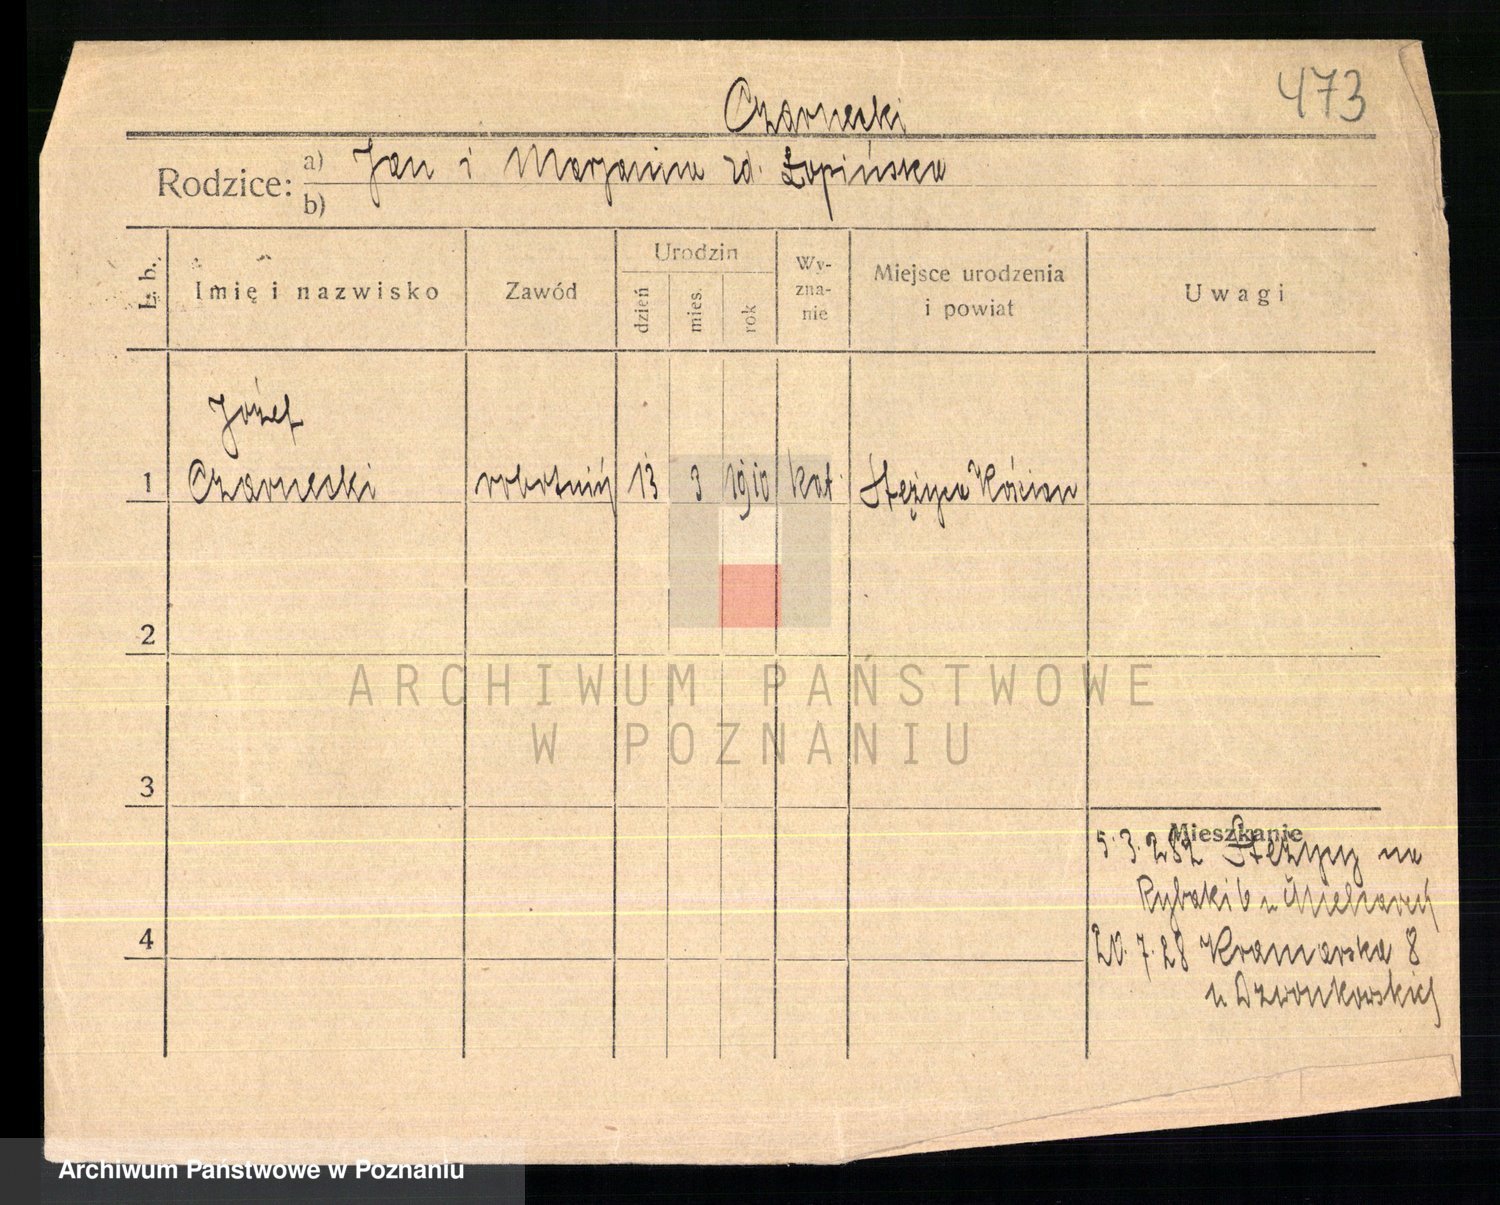 473
Czarnecki
Rodzice: a) Jan i Marjanna zd. Łopińska
b)
L. b. Imię i nazwisko Zawód Urodzin dzień mies. rok Wyznanie Miejsce urodzenia i powiat Uwagi
Józef
1 Czarnecki robotnik 13 3 1910 kat. Stężyca Kościan
2
ARCHIWUM PAŃSTWOWE
W POZNANIU
3
Mieszkanie
5.3.28 z Stężycy na
Rybaki 6 u
4
20.7.28 Kramarska 8
u Dzwonkowskich
Archiwum Państwowe w Poznaniu